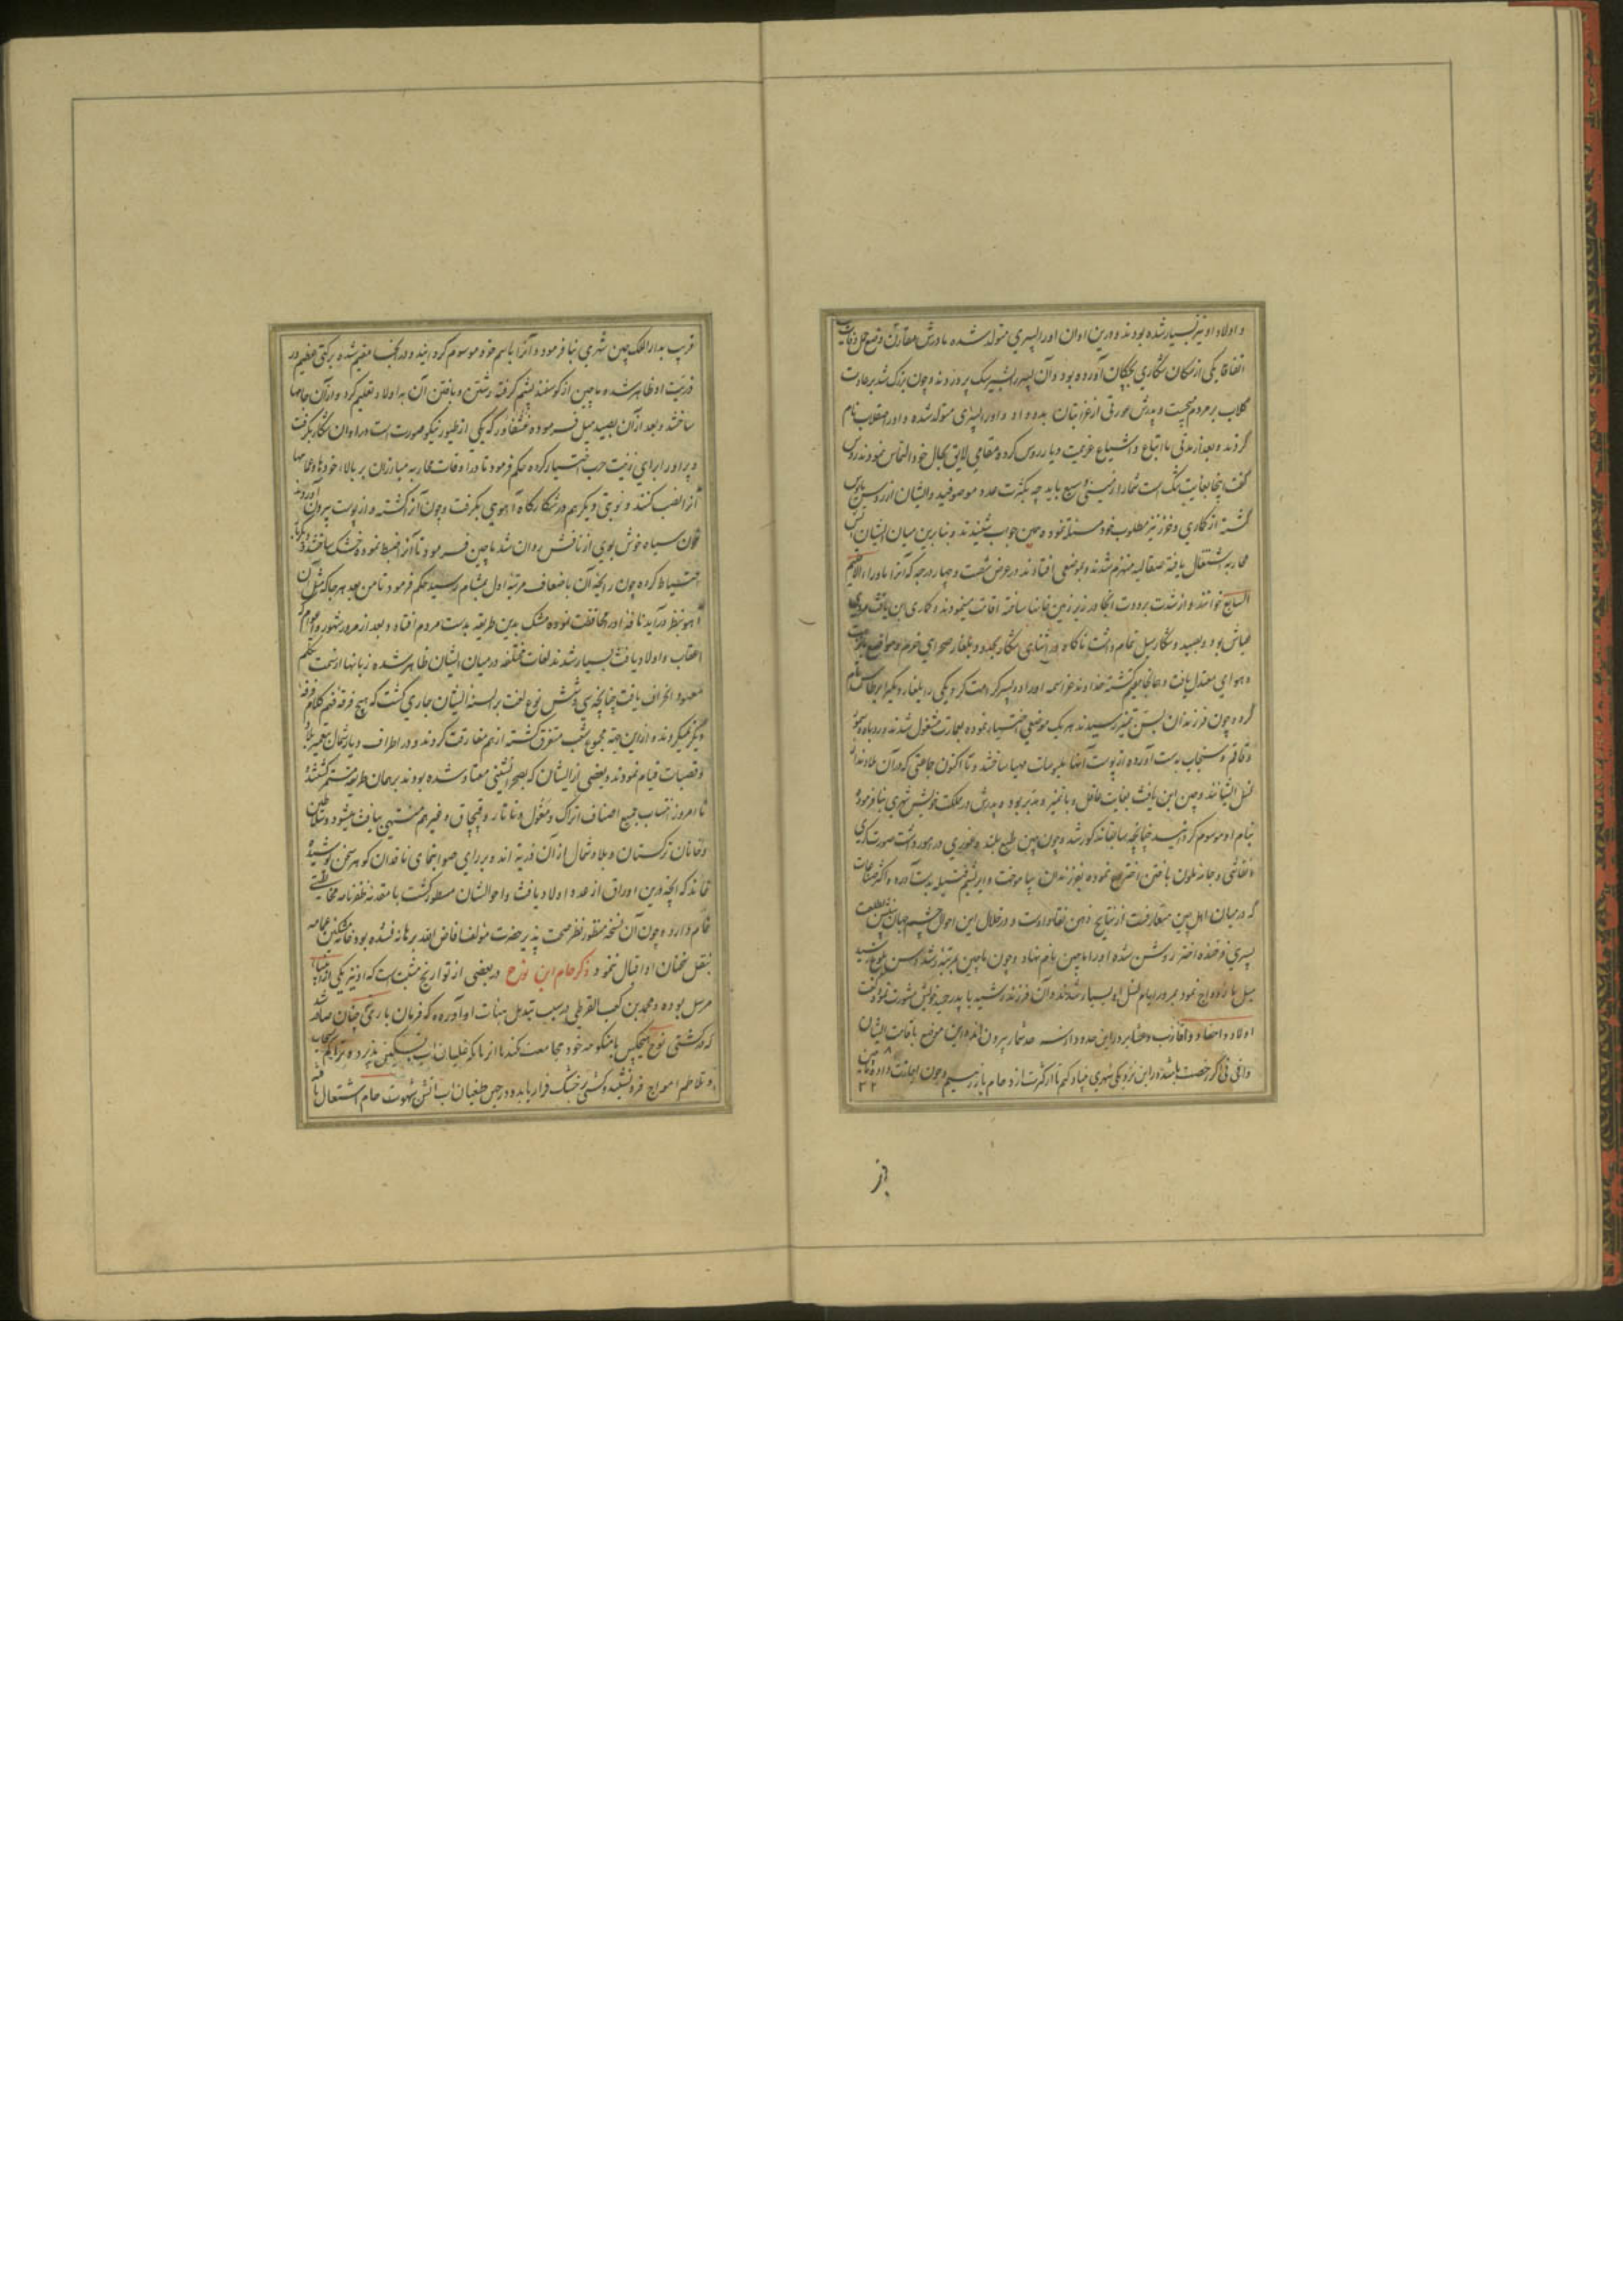 و اولاد او نیز بسیار شده بودند و درین اوان او را پسری متولد شده مادرش مقارن وضع حمل وفات یافت
اتفاقا یکی از سکان شکاری بچکان آورده بود و آن پسر را بشیر سک پروردند و چون بزرک شد بر عادت
کلاب بر مردم میجست و پدرش عورتی از غزاینان بدو داد و او را پسری متولد شده و او را صقلاب نام
کردند و بعد از مدتی با اتباع و اشیاع عزیمت دیار روس کرده مقامی لایق بحال خود التماس نمودند روس
گفت اینجا بغایت تنک است شما را زمینی وسیع باید چه بکثرت عدد موصوفید و ایشان از روس مایوس
گشته از کماری و خزر نیز مطلوب خود مسئلت نموده همین جواب شنیدند و بنابرین میان ایشان آتش
محاربه اشتعال یافته صقالبه منهزم شدند و بموضعی افتادند در عرض شصت و چهار درجه که آنرا ماوراء الاقلیم
السابع خوانند و از شدت برودت آنجا در زیر زمین خانها ساخته اقامت مینمودند کماری ابن یافث مردی
عیاش بود و بصید و شکار میل تمام داشت ناکاه در اثنای شکار بحدود بلغار صحرای خرم و مواضع با نزهت
و هوای معتدل یافت و همانجا مقیم کشته خداوند عز اسمه او را دو پسر کرامت کرد یکی را بلغار و دیکری را برطاس نام
کرده و چون فرزندان بسن تمیز رسیدند هر یک موضعی اختیار نموده بعمارت مشغول شدند و روباه و سمور
و قاقم و سنجاب بدست آورده از پوست آنها ملبوسات مهیا ساختند و تا اکنون جماعتی که در آن بلادند از
نسل ایشانند و چین ابن یافث بغایت عاقل و با تمیز و مدبر بود و پدرش در مملکت خویش شهری بنا فرموده
بنام او موسوم کردانید چنانچه سابقا مذکور شد و چون چین طبع بلند و هنروری در خور داشت صورت کری
و نقاشی و جامه ملون بافتن اختراع نموده بفرزندان بیاموخت و ابریشم از پیله بدست آورد و اکثر صناعات
که در میان اهل چین متعارفست از نتایج ذهن نقاد اوست و در خلال این احوال چشم جهان بینش بطلعت
پسری فرخنده اختر روشن شده او را ماچین نام نهاد و چون ماچین بمرتبه رشد و سن بلوغ رسید
میل بازدواج نمود بمرور ایام نسل او بسیار شدند و آن فرزند رشید با پدر خویش مشورت نموده گفت
اولاد و احفاد و اقارب و عشایر در این حدود از سر حد شمار بیرون اند و این موضع باقامت ایشان
وافی نی اکر رخصت باشد در این نزدیکی شهری بنیاد کنم تا از کثرت ازدحام باز رهیم و چون اجازت داد ماچین
از
قریب بدار الملک چین شهری بنا فرمود و آنرا باسم خود موسوم کردانید و در آنجا مقیم شده برکتی عظیم در
ذریت او ظاهر شد و ماچین از کوسفند پشم کرفته رشتن و بافتن آن باولاد تعلیم کرد و از آن جامها
ساختند و بعد از آن بصید میل فرموده غشغاو را که یکی از طیور نیکو صورت است در آن اوان شکار بکرفت
و پر او را برای زینت حرب اختیار کرده حکم فرمود تا در اوقات محاربه مبارزان بر بالای خودها و عمامها
آنرا نصب کنند و نوبتی دیکر هم در شکارگاه آهویی بکرفت و چون آنرا کشته و از پوست بیرون آوردند
خون سیاه خوش بوی از نافش روان شد ماچین فرمود تا آنرا ضبط نموده خشک ساختند
احتیاط کرده چون رایحه آن باضعاف مرتبه اول بمشام رسید حکم فرمود تا من بعد هر جا که مثل آن
آهو بنظر درآید نافه او را محافظت نموده مشک بدین طریقه بدست مردم افتاد و بعد از مرور شهور و اعوام
اعقاب و اولاد یافث بسیار شدند لغات مختلفه در میان ایشان ظاهر شده زبانها از سمت تکلم
معهود انحراف یافت چنانچه سی و شش نوع لغت بر السنه ایشان جاری کشت که هیچ فرقه فهم کلام فرقهٔ
دیکر نمیکردند و از این جهة مجموع شعب متفرق کشته از هم مفارقت کردند و در اطراف دیار شمال بتعمیر بلاد
و قصبات قیام نمودند و بعضی از ایشان که بصحرا نشینی معتاد شده بودند بر همان طریقه مستمر کشتند
تا امروز انتساب جمیع اصناف اتراک و مغول و تاتار و قبچاق و غیرهم منتهی بیافث میشود و سلاطین
و خانان ترکستان و بلاد شمال از آن ذریه اند و بر رای صواب نمای ناقدان کوهر سخن پوشیده
نماند که آنچه درین اوراق از عدد اولاد یافث و احوال ایشان مسطور کشت با مقدمه ظفرنامه مخالفتی
تمام دارد و چون آن نسخه منظور نظر صحت پذیر حضرت مؤلف افاض الله برهانه نشده بود خامه مشکین عمامه
بنقل سخنان او اقبال ننمود ذکر حام ابن نوح در بعضی از تواریخ مثبت است که او نیز یکی از انبیاء
مرسل بوده و محمد بن کعب القرظی در سبب تبدیل هیأت او آورده که فرمان باری چنان صادر شد
که در کشتی نوح هیچکس با منکوحه خود مجامعت نکند تا از مانکه غلیان آب تسکین پذیرد و تراکم سحاب
و تلاطم امواج فرو نشیند و کشتی بر خشک قرار یابد و در حین طغیان آب آتش شهوت حام اشتعال یافته